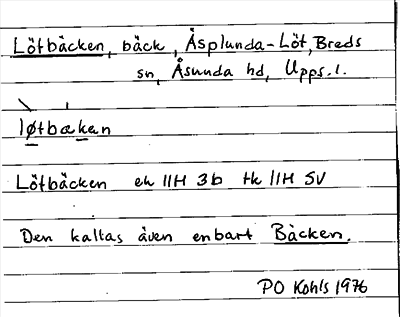 Lötbäcken, bäck, Äsplunda-Löt, Breds
sn, Åsunda hd, Upps. l.
løtbækan
Lötbäcken ek 11H 3b tk 11H SV
Den kallas även enbart Bäcken.
PO Kohls 1976